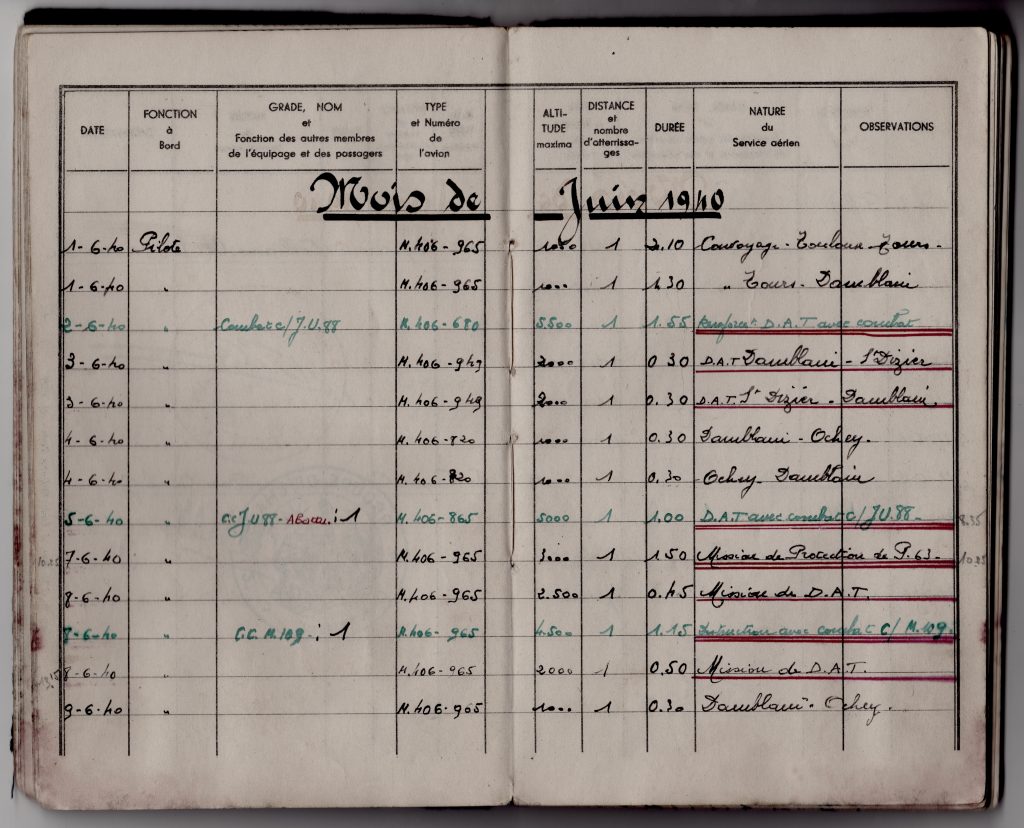 DATE FONCTION à Bord GRADE, NOM et Fonction des autres membres de l'équipage et des passagers TYPE et Numéro de l'avion ALTI-TUDE maxima DISTANCE et nombre d'atterrissa-ges DURÉE NATURE du Service aérien OBSERVATIONS
Mois de Juin 1940
1-6-40 Pilote M.406-965 1000 1 2.10 Convoyage - Toulouse - Tours -
1-6-40 " M.406-965 1000 1 1.30 " Tours - Damblain
2-6-40 " Combat c/ J.U.88 M.406-680 5.500 1 1.55 D.A.T avec combat
3-6-40 " M.406-949 2000 1 0 30 D.A.T Damblain - St Dizier
3-6-40 " M.406-949 2000 1 0.30 D.A.T. St Dizier - Damblain.
4-6-40 " M.406-820 1000 1 0.30 Damblain - Ochey.
4-6-40 " M.406-820 1000 1 0.30 Ochey - Damblain
5-6-40 " JU 88 - : 1 M.406-865 5000 1 1.00 D.A.T avec combat c/ JU.88 - 8.35
10.25 7-6-40 " M.406-965 3000 1 1 50 Mission de Protection de P.63. 10.25
8-6-40 " M.406-965 2.500 1 0.45 Mission de D.A.T.
8-6-40 " M.109 : 1 M.406-965 4.500 1 1.15 avec combat C/ M.109.
8-6-40 " M.406-965 2000 1 0.50 Mission de D.A.T.
9-6-40 " M.406-965 1000 1 0.30 Damblain - Ochey.